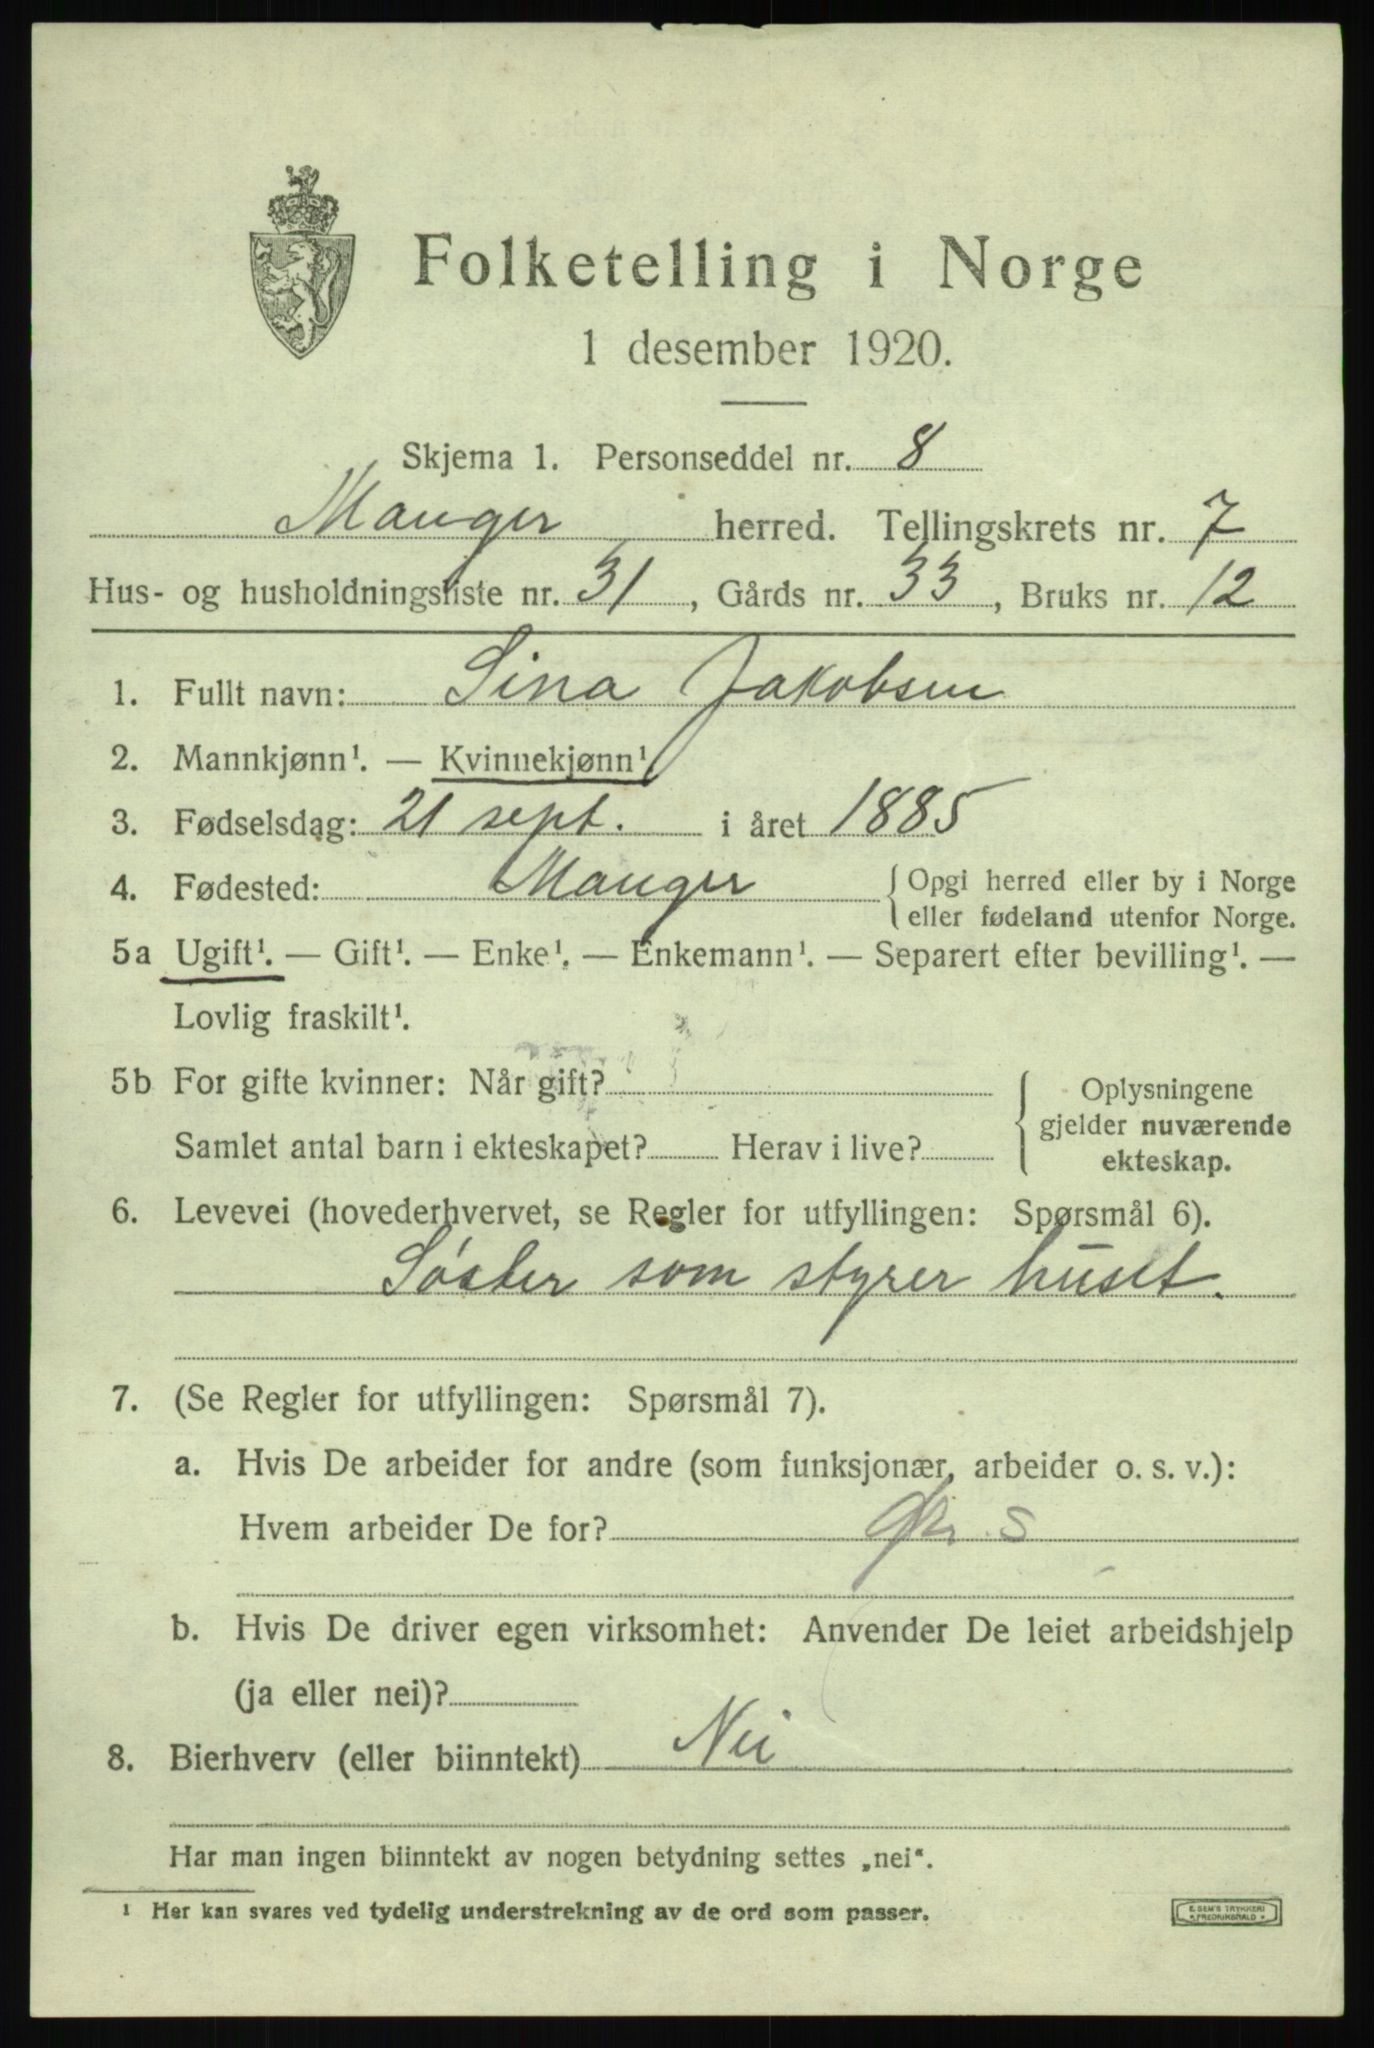 Folketelling i Norge
1 desember 1920.
Skjema 1. Personseddel nr. 8
Manger herred. Tellingskrets nr. 7
Hus- og husholdningsliste nr. 31, Gårds nr. 33, Bruks nr. 12
1. Fullt navn: Sina Jakobsen
2. Mannkjønn¹. — Kvinnekjønn¹
3. Fødselsdag: 21 sept. i året 1885
4. Fødested: Manger { Opgi herred eller by i Norge
eller fødeland utenfor Norge.
5a Ugift¹. — Gift¹. — Enke¹. — Enkemann¹. — Separert efter bevilling¹. —
Lovlig fraskilt¹.
5b For gifte kvinner: Når gift?
Samlet antal barn i ekteskapet? Herav i live?
{ Oplysningene
gjelder nuværende
ekteskap.
6. Levevei (hovederhvervet, se Regler for utfyllingen: Spørsmål 6).
Søster som styrer huset.
7. (Se Regler for utfyllingen: Spørsmål 7).
a. Hvis De arbeider for andre (som funksjonær, arbeider o. s. v.):
Hvem arbeider De for?
b. Hvis De driver egen virksomhet: Anvender De leiet arbeidshjelp
(ja eller nei)?
8. Bierhverv (eller biinntekt) Nei
Har man ingen biinntekt av nogen betydning settes „nei“.
¹ Her kan svares ved tydelig understrekning av de ord som passer.
E SEM'S TRYKKERI
FREDRIKSHALD